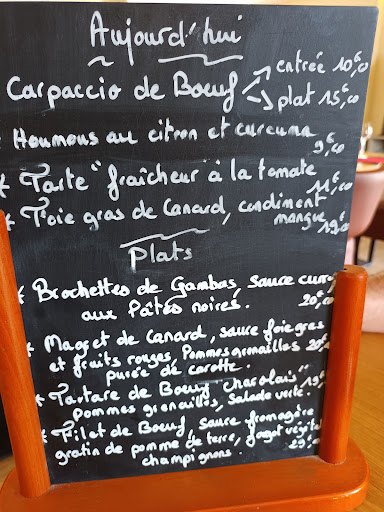 Aujourd'hui
entrée 10€,00
Carpaccio de Boeuf
plat 15€,00
* Houmous au citron et curcuma
9€,00
* Tarte "fraîcheur" à la tomate
11€,00
* Foie gras de Canard, condiment
mangue 19€,00
Plats
* Brochettes de Gambas, sauce curry
aux Pâtes noires. 20€,00
* Magret de Canard, sauce foie gras
et fruits rouges, Pommes grenailles
purée de carotte.
* Tartare de Boeuf "charolais"
pommes grenailles, Salade verte.
* Filet de Boeuf, sauce fromagère
gratin de pomme de terre, fagot
champignons.